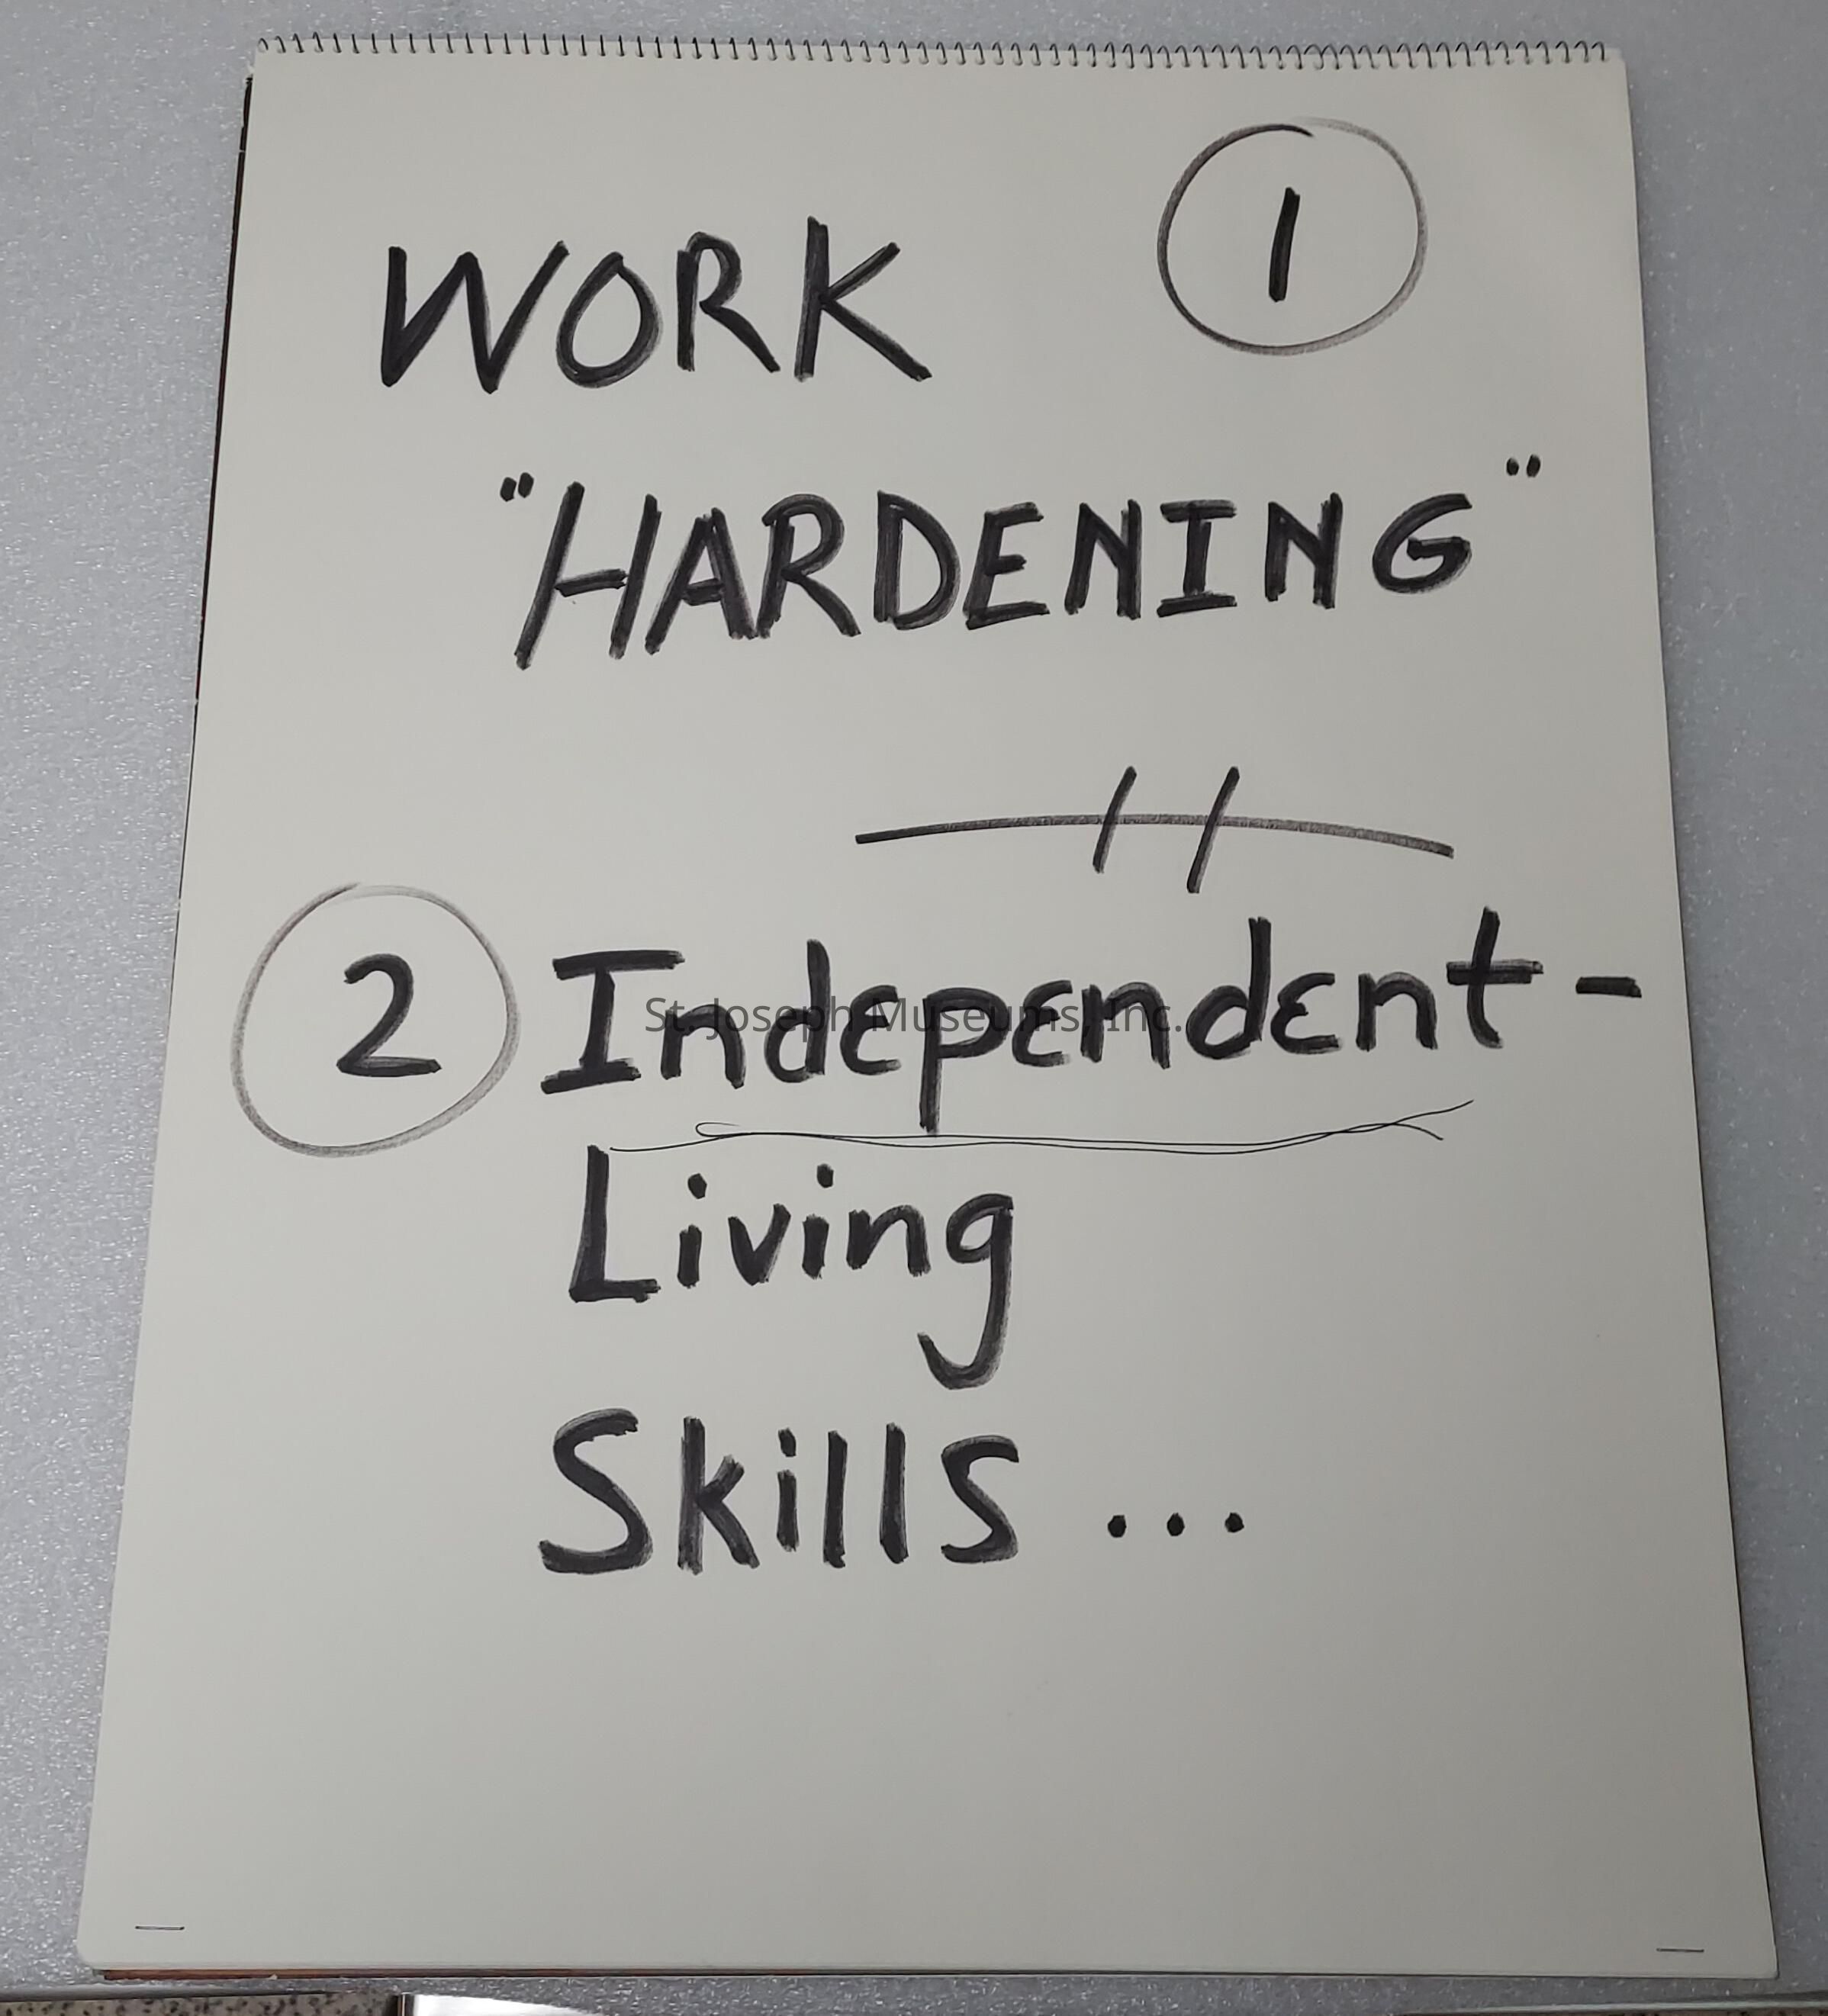 WORK 1
"HARDENING"
2 Independent-
St. Joseph Museums, Inc.
Living
Skills ...